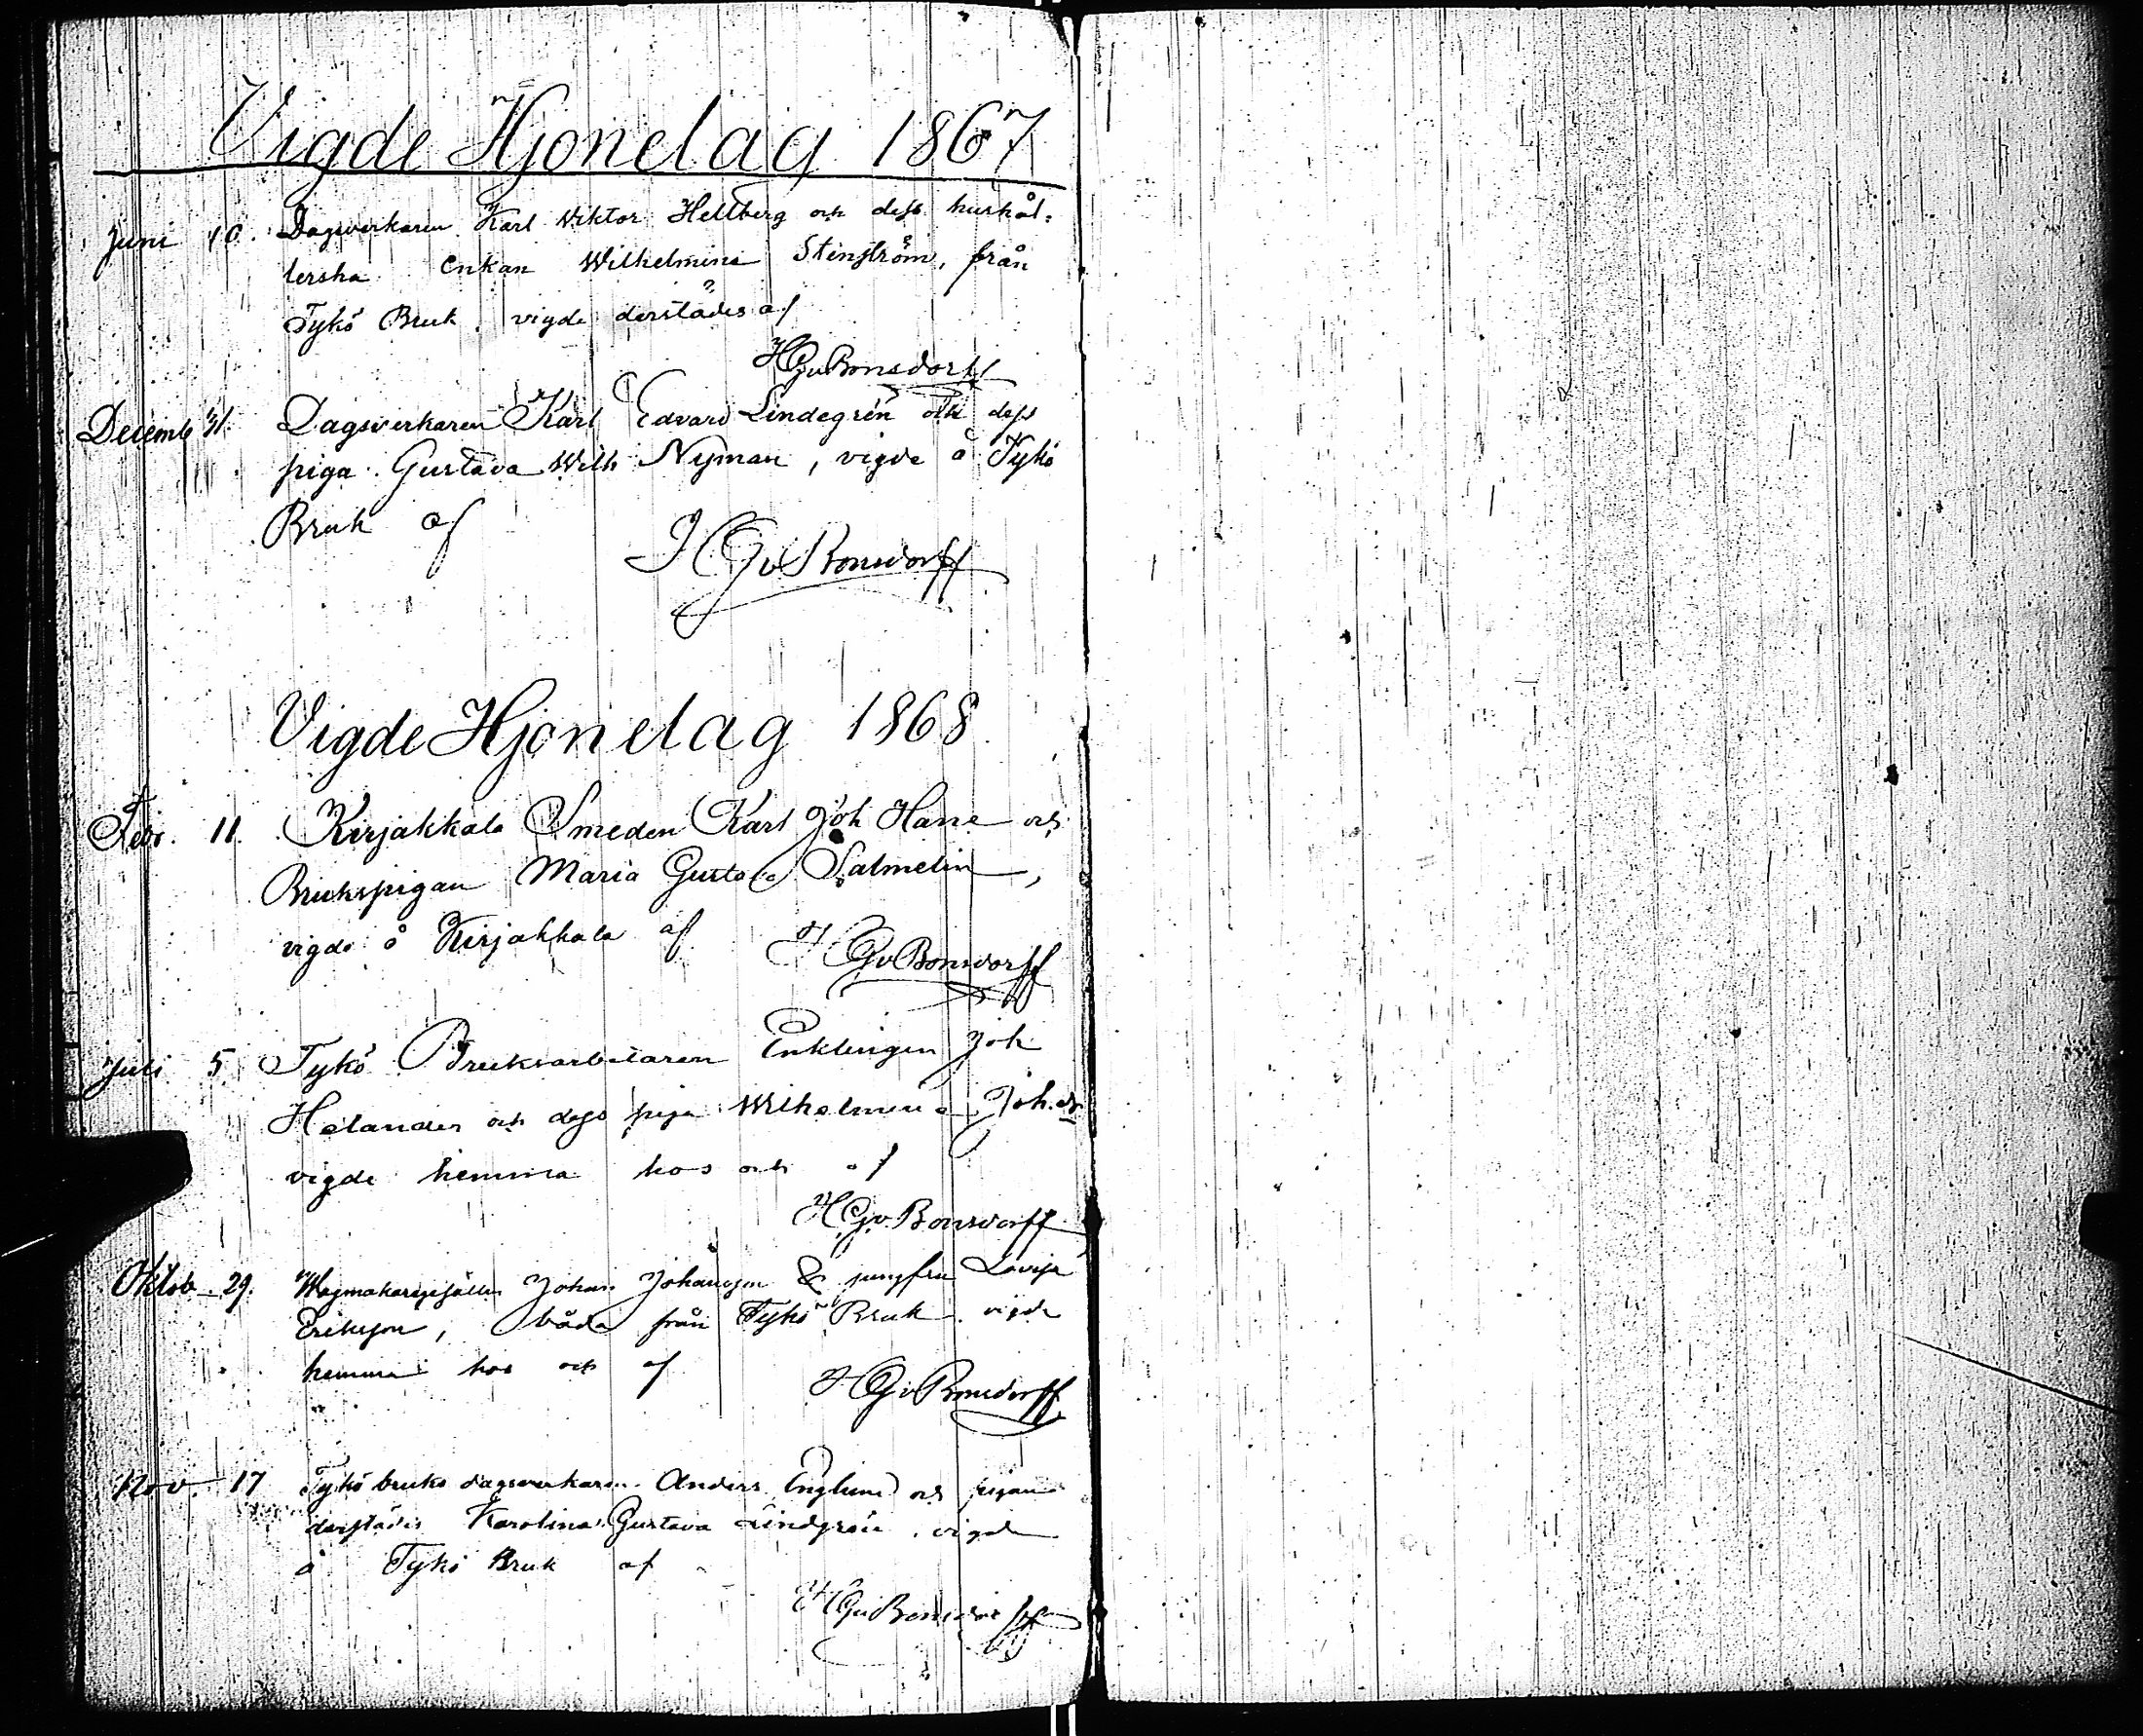 Vigde Hjonelag 1867
Juni 10. Dagsverkaren Karl Viktor Hellberg och dess hushål-
lerska Enkan Wilhelmina Stenström, från
Tykö Bruk, vigde derstädes af
HGvBonsdorff
Decemb 31. Dagsverkaren Karl Edvard Lindegrén och dess
piga Gustava Wilh Nyman, vigde å Tykö
Bruk af
HGvBonsdorff
Vigde Hjonelag 1868
Febr. 11. Kirjakkala Smeden Karl Joh Hane och
Brukspigan Maria Gustava Salmelin,
vigde å Kirjakkala af HGvBonsdorff
Juli 5 Tykö Bruksarbetaren Enklingen Joh
Helander och dess piga Wilhelmina Joh.dr
vigde hemma hos och af
HGv.Bonsdorff
Oktob 29. Wagnmakaregesällen Johan Johansson & jungfru Lovisa
Eriksson, båda från Tykö Bruk vigde
hemma hos och af HGvBonsdorff
Nov. 17 Tykö bruks dagsverkaren Anders Englund och pigan
derstädes Karolina Gustava Lindgrén, vigde
å Tykö Bruk af
HGvBonsdorff